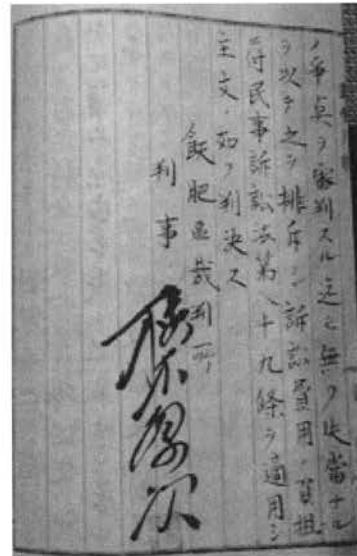 ノ争点ヲ審判スル迄モ無ク失当ナル
ヲ以テ之ヲ排斥シ訴訟費用ノ負担
ニ付民事訴訟法第八十九條ヲ適用シ
主文ノ如ク判決ス
飫肥區裁判所
判事